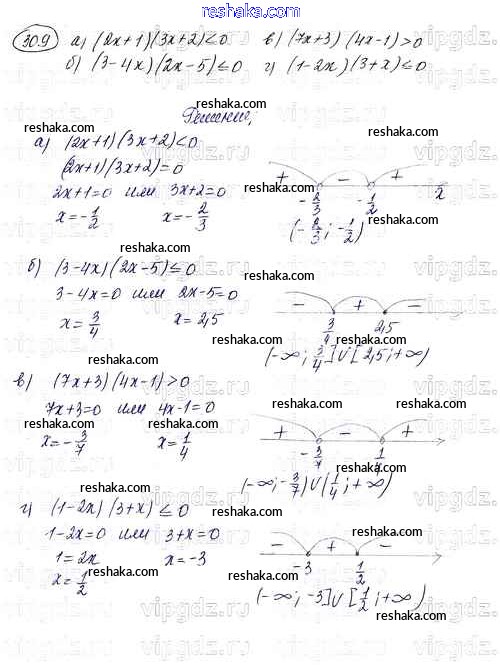 www.reshaka.com
30.9 а) (2x+1)(3x+2)<0 в) (7x+3)(4x-1)>0
б) (3-4x)(2x-5)≤0 г) (1-2x)(3+x)≤0
Решение,
а) (2x+1)(3x+2)<0
(2x+1)(3x+2)=0
2x+1=0 или 3x+2=0
x=-1/2 x=-2/3
+ - +
-2/3 -1/2 x
(-2/3; -1/2)
б) (3-4x)(2x-5)≤0
3-4x=0 или 2x-5=0
x=3/4 x=2,5
- + -
3/4 2,5
(-∞; 3/4]∪[2,5;+∞)
в) (7x+3)(4x-1)>0
7x+3=0 или 4x-1=0
x=-3/7 x=1/4
+ - +
-3/7 1/4
(-∞;-3/7)∪(1/4;+∞)
г) (1-2x)(3+x)≤0
1-2x=0 или 3+x=0
1=2x x=-3
x=1/2
- + -
-3 1/2
(-∞;-3]∪[1/2;+∞)
reshaka.com
vipgdz.ru